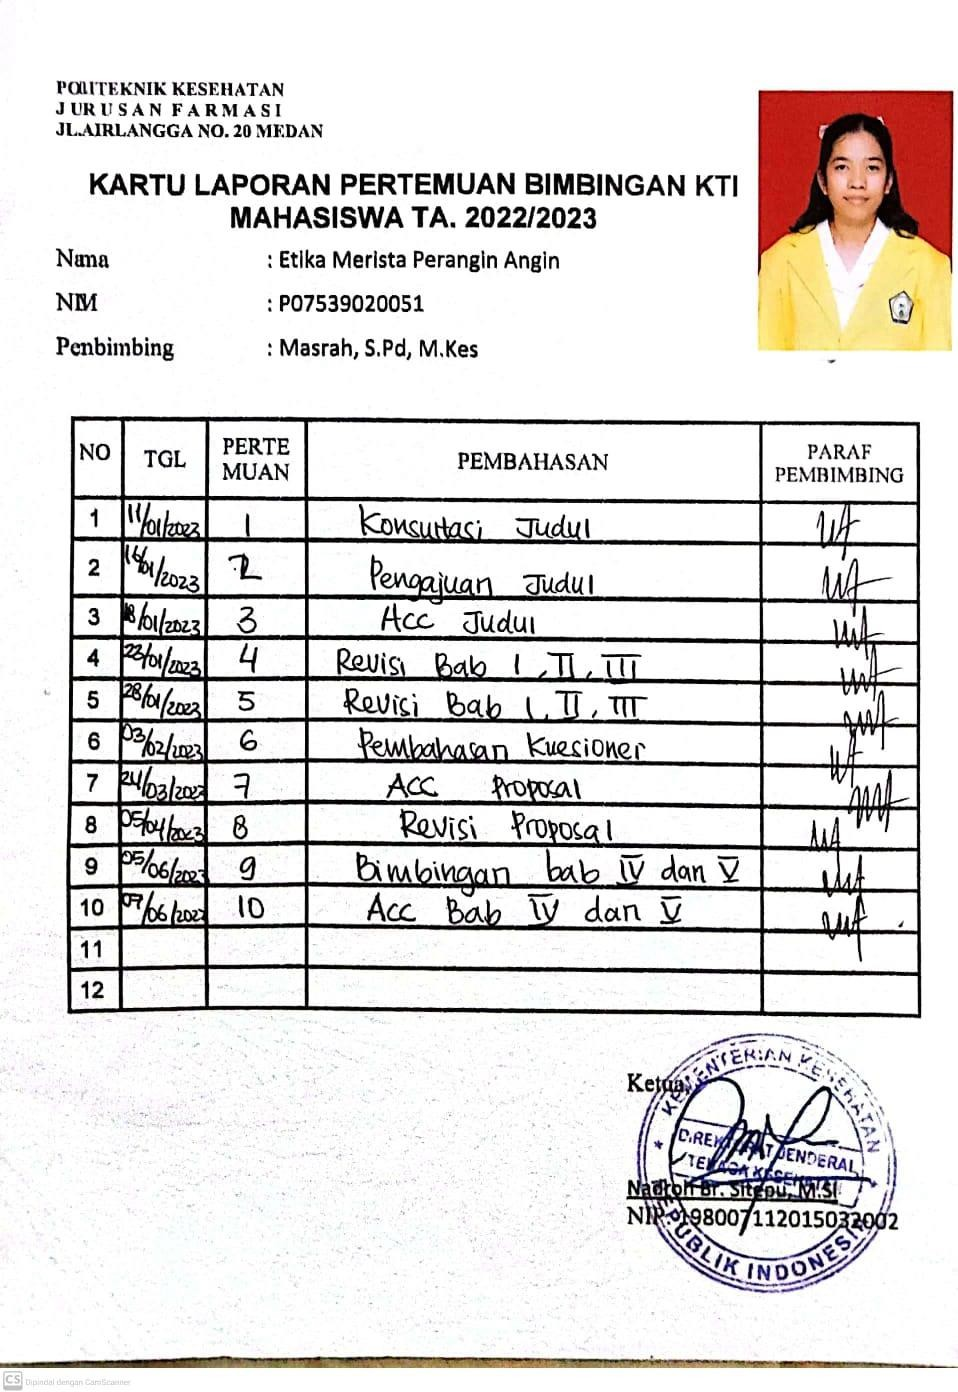 POLITEKNIK KESEHATAN
JURUSAN FARMASI
JL.AIRLANGGA NO. 20 MEDAN
KARTU LAPORAN PERTEMUAN BIMBINGAN KTI
MAHASISWA TA. 2022/2023
Nama : Etika Merista Perangin Angin
NIM : P07539020051
Penbimbing : Masrah, S.Pd, M.Kes
NO TGL PERTE MUAN PEMBAHASAN PARAF PEMBIMBING
1 11/01/2023 1 Konsultasi Judul
2 /01/2023 2 Pengajuan Judul
3 18/01/2023 3 Acc Judul
4 23/01/2023 4 Revisi Bab I, II, III
5 28/01/2023 5 Revisi Bab I, II, III
6 03/02/2023 6 Pembahasan Kuesioner
7 24/03/2023 7 ACC Proposal
8 05/04/2023 8 Revisi Proposal
9 05/06/2023 9 Bimbingan bab IV dan V
10 07/06/2023 10 Acc Bab IV dan V
11
12
Ketua,
KEMENTERIAN KESEHATAN
DIREKTORAT JENDERAL
TENAGA KESEHATAN
Nadroh Br. Sitepu, M.Si
NIP. 198007112015032002
REPUBLIK INDONESIA
CS Dipindai dengan CamScanner